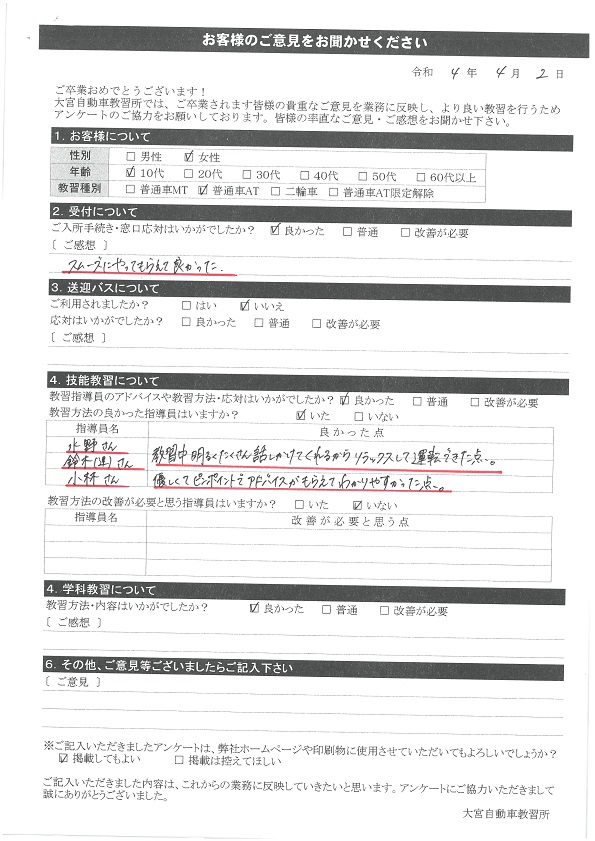 お客様のご意見をお聞かせください
令和 4 年 4 月 2 日
ご卒業おめでとうございます！
大宮自動車教習所では、ご卒業されます皆様の貴重なご意見を業務に反映し、より良い教習を行うため
アンケートのご協力をお願いしております。皆様の率直なご意見・ご感想をお聞かせ下さい。
1. お客様について
性別 □ 男性 ☑ 女性
年齢 ☑ 10代 □ 20代 □ 30代 □ 40代 □ 50代 □ 60代以上
教習種別 □ 普通車MT ☑ 普通車AT □ 二輪車 □ 普通車AT限定解除
2. 受付について
ご入所手続き・窓口応対はいかがでしたか？ ☑ 良かった □ 普通 □ 改善が必要
〔 ご感想 〕
スムーズにやってもらえて良かった.
3. 送迎バスについて
ご利用されましたか？ □ はい ☑ いいえ
応対はいかがでしたか？ □ 良かった □ 普通 □ 改善が必要
〔 ご感想 〕
4. 技能教習について
教習指導員のアドバイスや教習方法・応対はいかがでしたか？ ☑ 良かった □ 普通 □ 改善が必要
教習方法の良かった指導員はいますか？ ☑ いた □ いない
指導員名 良かった点
水野さん
鈴木(達)さん 教習中明るくたくさん話しかけてくれるからリラックスして運転できた点。
小林さん 優しくてピンポイントでアドバイスがもらえてわかりやすかった点。
教習方法の改善が必要と思う指導員はいますか？ □ いた ☑ いない
指導員名 改善が必要と思う点
4. 学科教習について
教習方法・内容はいかがでしたか？ ☑ 良かった □ 普通 □ 改善が必要
〔 ご感想 〕
6. その他、ご意見等ございましたらご記入下さい
〔 ご意見 〕
※ご記入いただきましたアンケートは、弊社ホームページや印刷物に使用させていただいてもよろしいでしょうか？
☑ 掲載してもよい □ 掲載は控えてほしい
ご記入いただきました内容は、これからの業務に反映していきたいと思います。アンケートにご協力いただきまして
誠にありがとうございました。
大宮自動車教習所